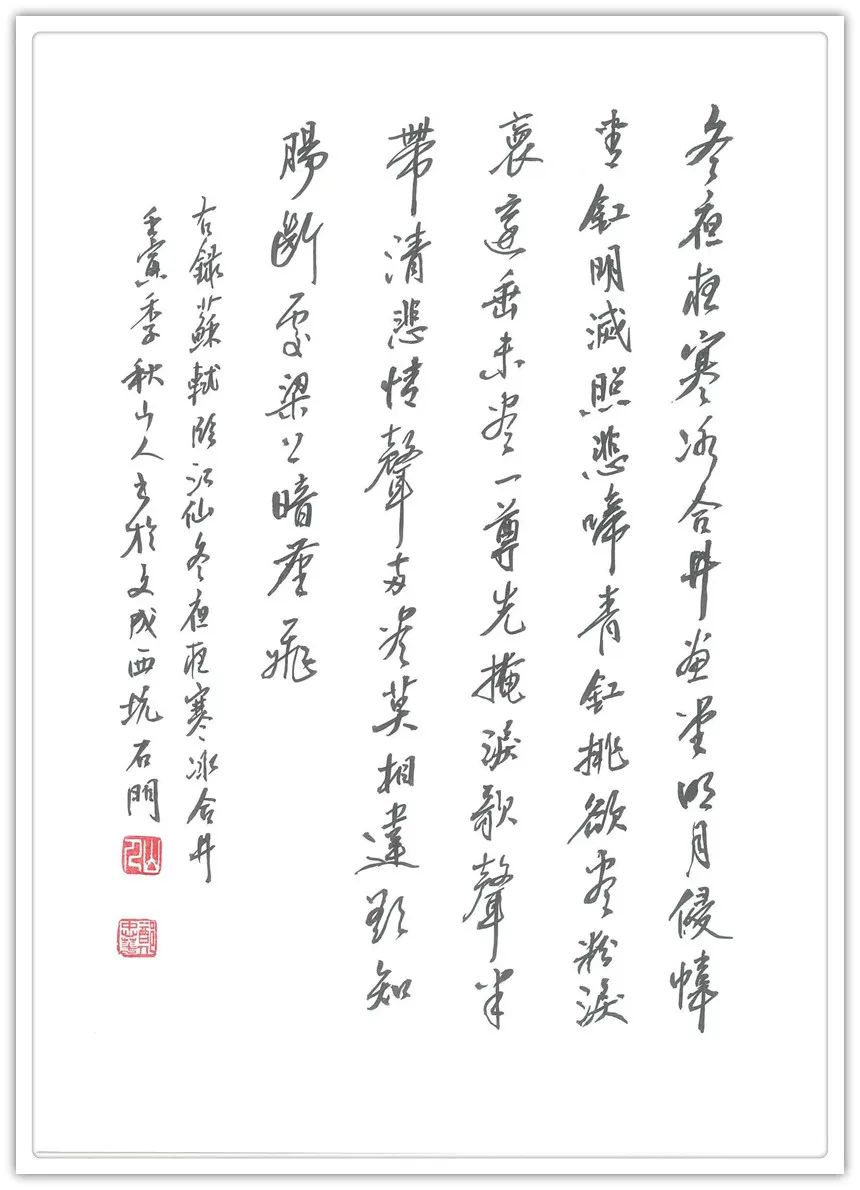 冬夜夜寒冰合井畫堂明月侵幃
青釭明滅照悲啼青釭挑欲盡粉淚
裛還垂未盡一尊先掩淚歌聲半
帶清悲情聲兩盡莫相違欲知
腸斷處梁上暗塵飛
右錄蘇軾臨江仙冬夜夜寒冰合井
壬寅季秋山人書於文成西坑石門
山人